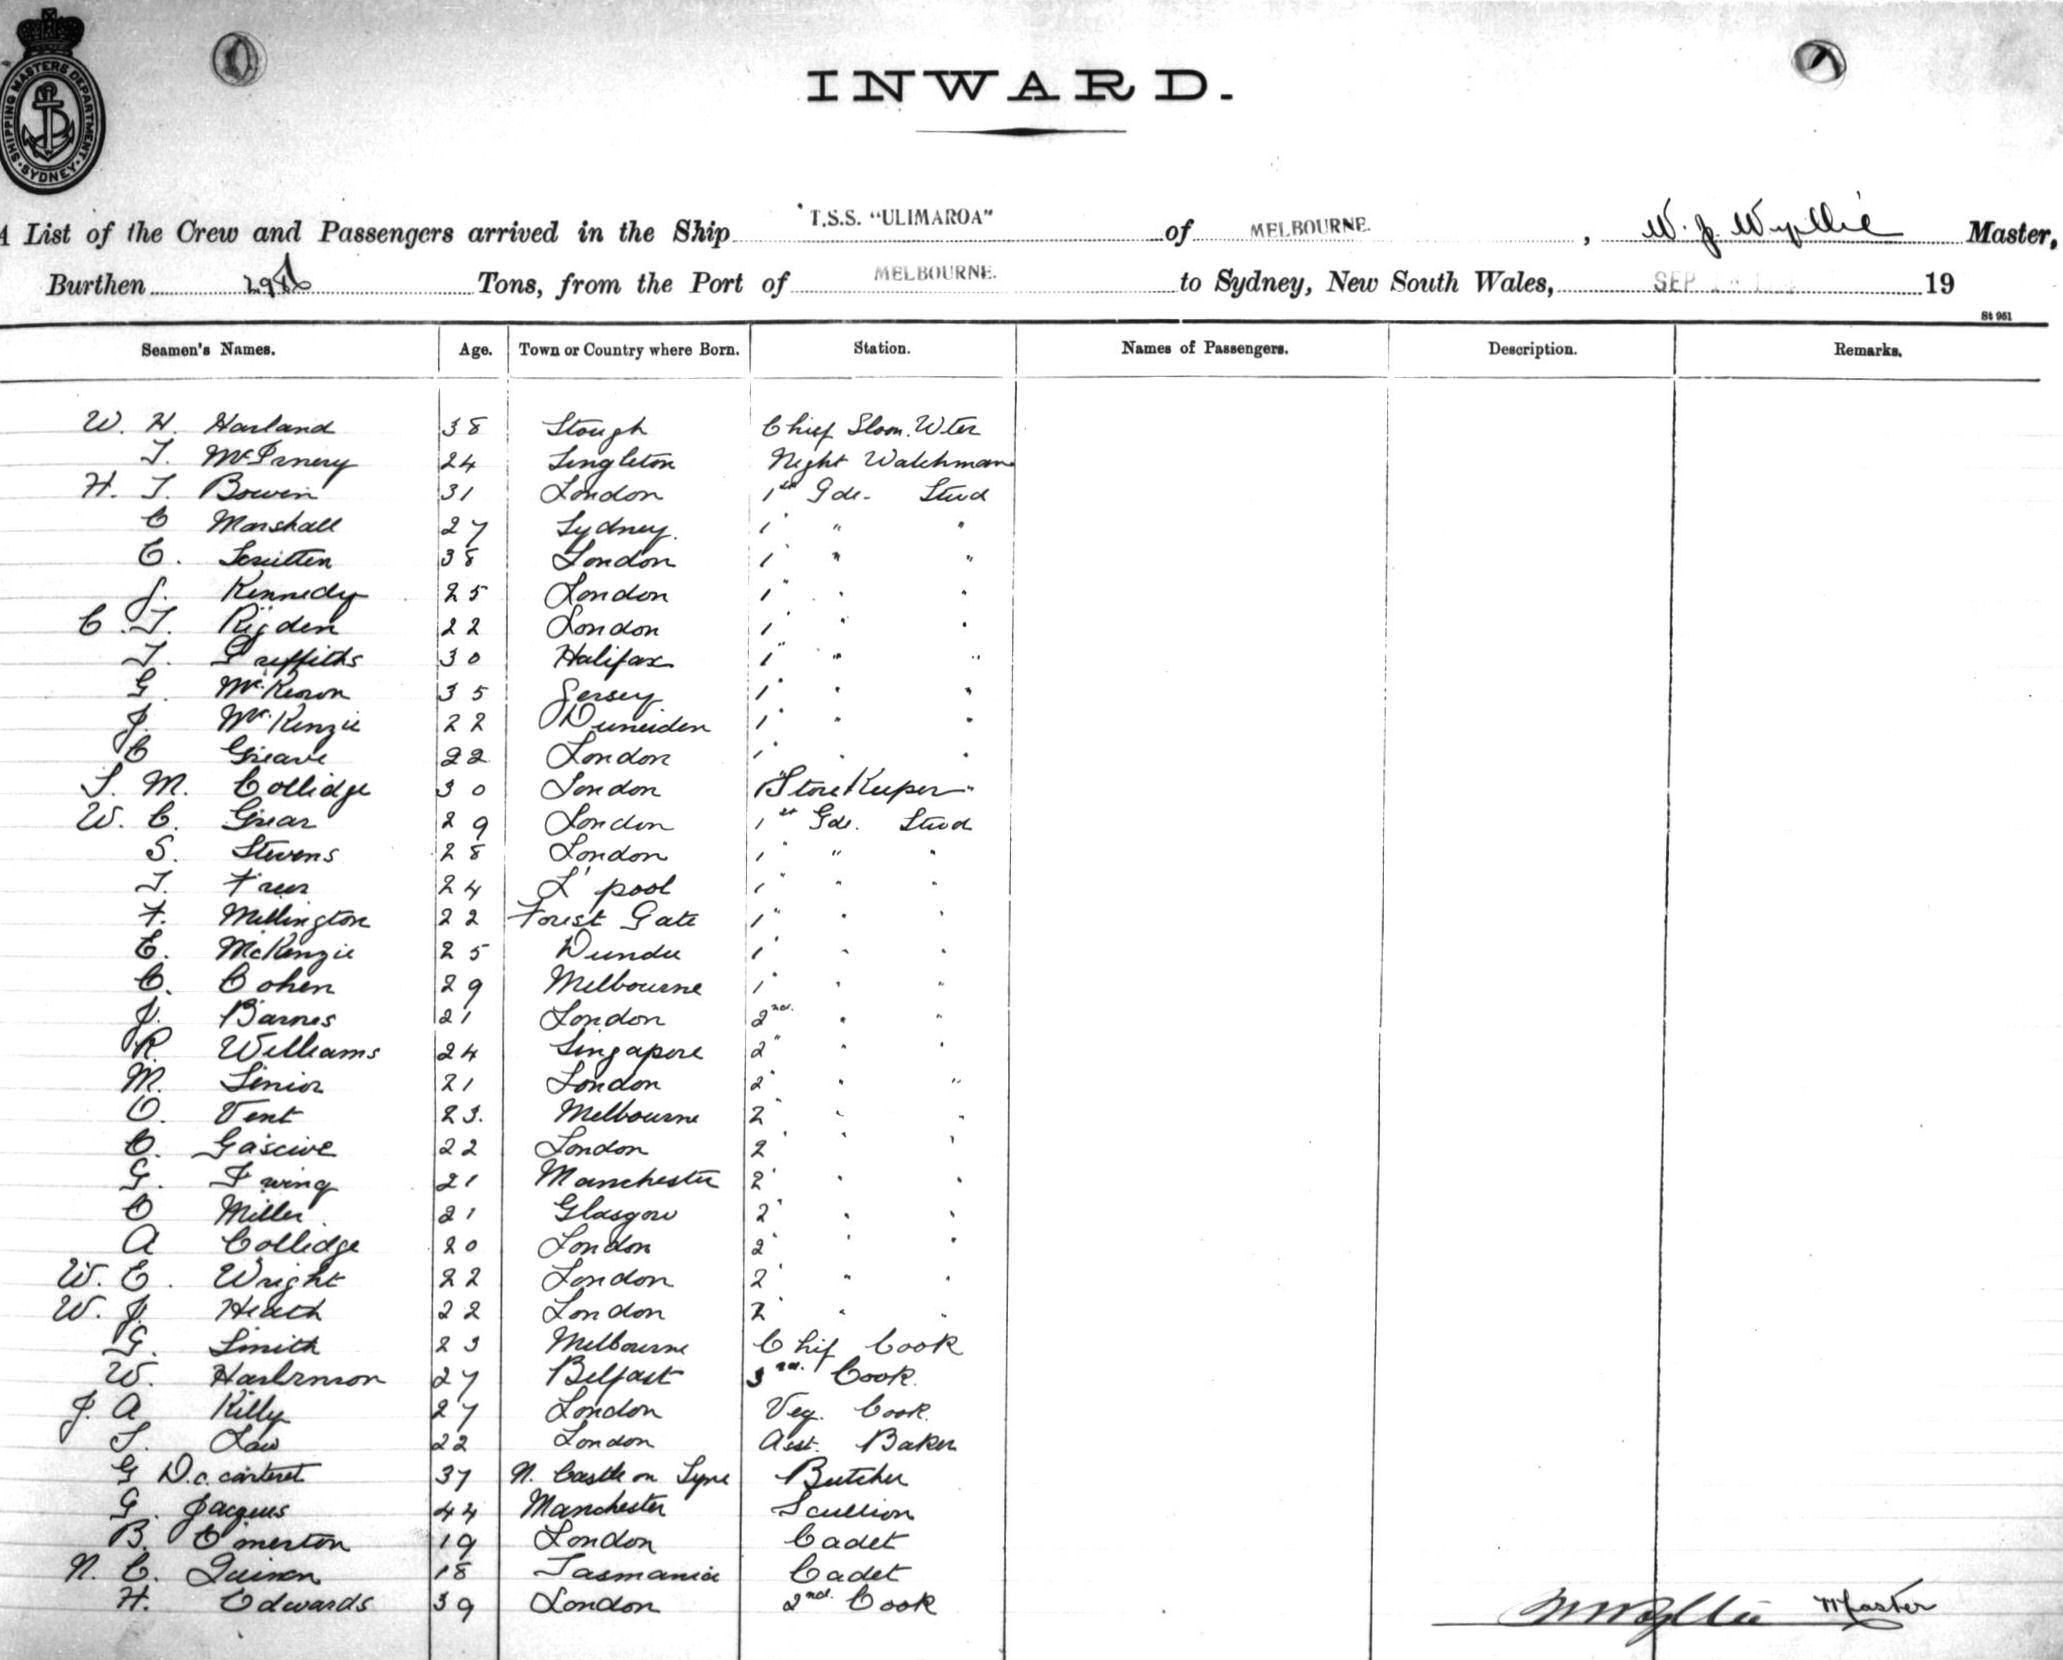 SHIPPING MASTERS DEPARTMENT. SYDNEY
INWARD.
A List of the Crew and Passengers arrived in the Ship T.S.S. "ULIMAROA" of MELBOURNE. , W. J. Wyllie Master,
Burthen Tons, from the Port of MELBOURNE. to Sydney, New South Wales, SEP 19
St 951
Seamen's Names. Age. Town or Country where Born. Station. Names of Passengers. Description. Remarks.
W. H. Harland 38 Slough Chief Sloon. Wter
T. 24 Singleton Night Watchman
H. T. Bowen 31 London 1st Gde. Stwd
C Marshall 27 Sydney. 1 " "
C. 38 London 1 " "
J. Kennedy 25 London 1 " "
C. T. Rigden 22 London 1 " "
T. Griffiths 30 Halifax 1 " "
G. McKeown 35 Jersey 1 " "
J. McKenzie 22 Duneiden 1 " "
C Greave 22 London 1 " "
S. M. Collidge 30 London Store Keeper "
W. C. Grear 29 London 1st Gde. Stwd
S. Stevens 28 London 1 " "
T. Freer 24 L'pool 1 " "
F. Millington 22 Forest Gate 1 " "
E. McKenzie 25 Dundee 1 " "
C. Cohen 29 Melbourne 1 " "
J. Barnes 21 London 2nd. " "
R Williams 24 Singapore 2 " "
M. Senior 21 London 2 " "
O. Vent 23. Melbourne 2 " "
C. 22 London 2 " "
G. Irwing 21 Manchester 2 " "
C Miller 21 Glasgow 2 " "
A Collidge 20 London 2 " "
W. E. Wright 22 London 2 " "
W. J. Heath 22 London 2 " "
G. Smith 23 Melbourne Chif Cook
W. Harbinson 27 Belfast 3rd. Cook.
J. A Killy 27 London Veg. Cook.
S. Law 22 London Asst. Baker
G D.c. carteret 37 N. Castle on Tyne Butcher
G. Jacques 44 Manchester Scullion
B. Emerton 19 London Cadet
N. C. 18 Tasmania Cadet
H. Edwards 39 London 2nd. Cook
W J Wyllie Master